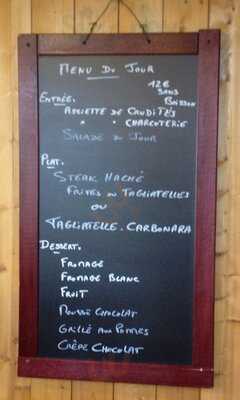 MENU DU JOUR
12€
SANS
BOISSON
ENTRÉE.
ASSIETTE DE CRUDITÉS
" " CHARCUTERIE
SALADE DU JOUR
PLAT.
STEAK HACHÉ
FRITES OU TAGLIATELLES
OU
TAGLIATELLE. CARBONARA
DESSERT.
FROMAGE
FROMAGE BLANC
FRUIT
MOUSSE CHOCOLAT
GRILLÉ AUX POMMES
CRÊPE CHOCOLAT